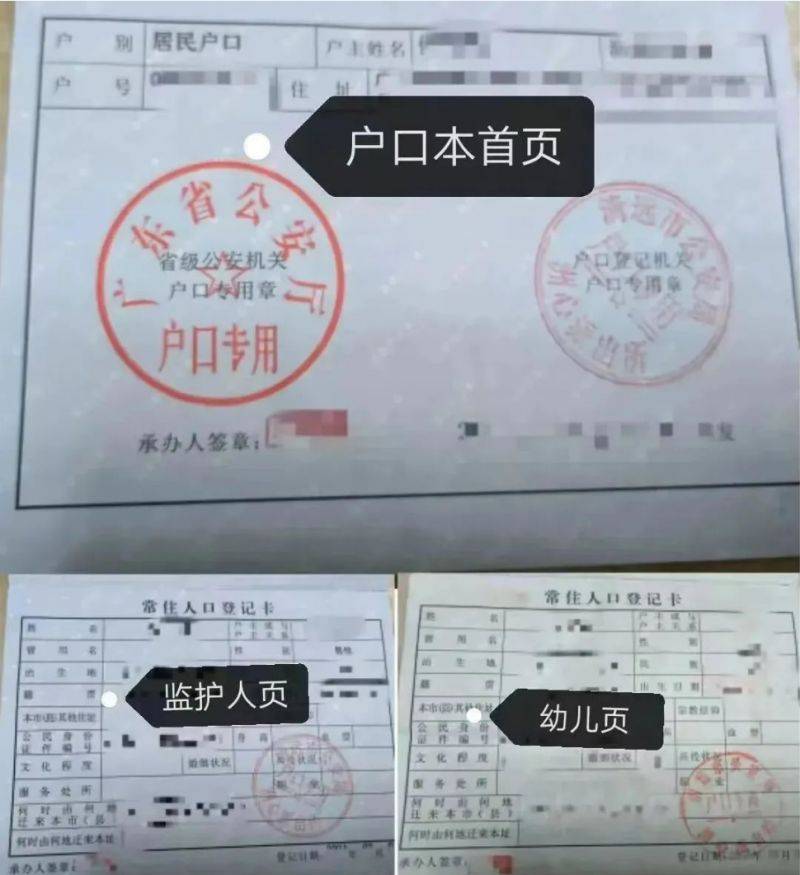 户 别 居民户口 户主姓名
户 号 住 址
户口本首页
广东省公安厅
省级公安机关
户口专用章
户口专用
清远市公安局
户口登记机关
户口专用章
洲心派出所
承办人签章：
发
常住人口登记卡
姓 名 户主或与
户主关系
曾用名 性 别
出生地
籍 贯
监护人页
本市(县)其他住址
公民身份
证件编号 身 高 血 型
文化程度 婚姻状况 兵役状况
服务处所
何时由何地
迁来本市(县)
何时由何地迁来本址
承办人签章： 登记日期：
常住人口登记卡
姓 名 户主或与
户主关系
曾用名 性 别
出生地 民 族
籍 贯 出生日期
幼儿页
本市(县)其他住址 宗教信仰
公民身份
证件编号 血 型
文化程度 婚姻状况 兵役状况
服务处所 职 业
何时由何地
迁来本市(县)
何时由何地迁来本址
承办人签章： 登记日期：